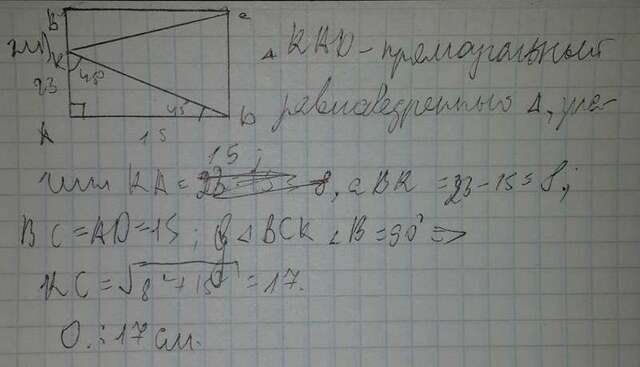 B C
K 45°
23
A 15 45 D
△ KAD - прямоугольный
равнобедренный △, зна-
15;
чит KA = , а BK = 23 - 15 = 8;
BC = AD = 15; В △ BCK ∠B = 90° =>
KC = √8² + 15² = 17.
О.: 17 см.